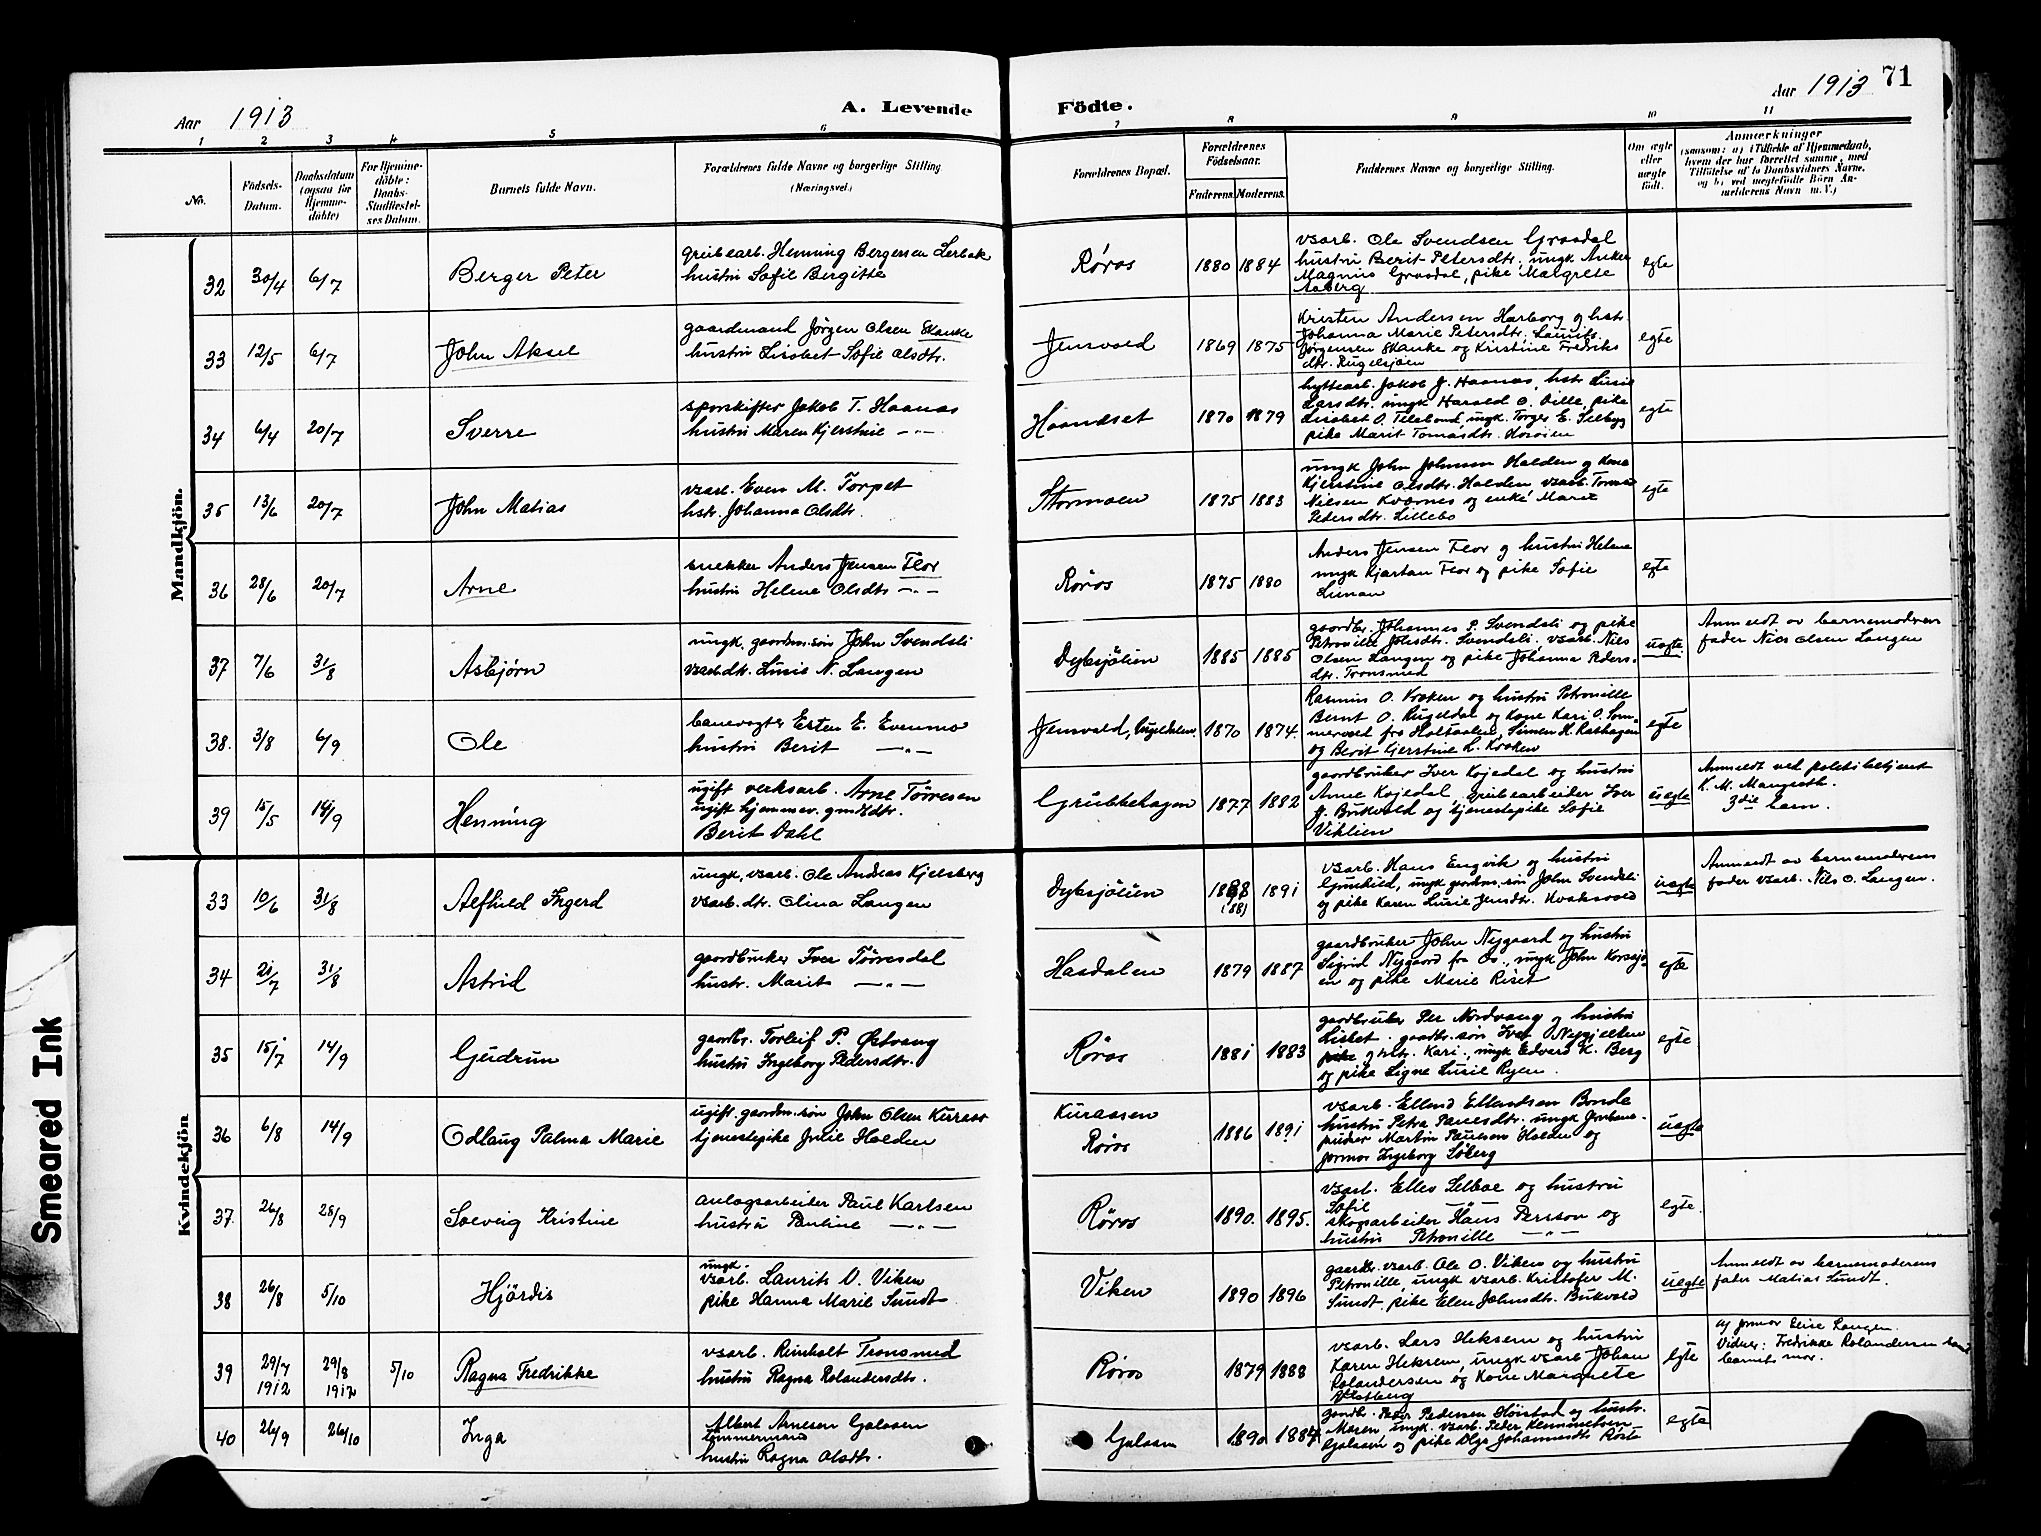 71
Aar 1913
A. Levende Födte.
Aar 1913
1 2 3 4 5 6 7 8 9 10 11
No.
Födsels-
Datum.
Daabsdatum
(ogsaa for
Hjemme-
döbte)
For Hjemme-
döbte:
Daabs-
Stadfæstel-
ses Datum.
Barnets fulde Navn.
Forældrenes fulde Navne og borgerlige Stilling.
(Næringsvei.)
Forældrenes Bopæl.
Forældrenes
Födselsaar.
Faderens.
Moderens.
Faddernes Navne og borgerlige Stilling.
Om ægte
eller
uægte
födt.
Anmærkninger
(saasom: a) i Tilfælde af Hjemmedaab,
hvem der har forrettet samme, med
Tilföielse af to Daabsvidners Navne,
og b) ved uægtefödte Börn An-
mælderens Navn m. V.)
Mandkjön.
32 30/4 6/7 Berger Peter
grubearb. Henning Bergersen Lerbak
hustru Sofie Bergitte
Røros 1880 1884
vsarb. Ole Svendsen Graadal
hustru Berit Petersdtr. ungk Anker
Magnus Graadal, pike Margrete
Aaberg
egte
33 12/5 6/7 John Aksel
gaardmand Jörgen Olsen Skanke
hustru Lisbet Sofie Olsdtr.
Jensvold 1869 1875
Kristen Andersen Harborg og hstr.
Johanna Marie Petersdtr. Laurits
Jørgensen Skanke og Kristine Fredriks
dtr. Rugelsjøen
egte
34 6/4 20/7 Sverre
sporskifter Jakob T. Haanas
hustru Maren Kjerstine —"—
Haandset 1870 1879
hyttearb. Jakob J. Haanas, hstr Lusie
Larsdtr. ungk Harald O. Lille, pike
Lisabet O. ungk. Torger E. Selbyg
pike Marit Tomasdtr.
egte
35 13/6 20/7 John Matias
vsarb. Even M. Torpet
hstr. Johanna Olsdtr.
Stormoen 1875 1883
ungk John Johnson Halden og Kone
Kjerstine Olsdtr. Halden vsarb. Tomas
Nielsen Kværnes og enke Maret
Pedersdtr. Lillebo
egte
36 28/6 20/7 Arne
snekker Anders Jensen Flor
hustru Helene Olsdtr —"—
Røros 1875 1880
Anders Jensen Flor og hustru Helene
ungk Kjartan Flor og pike Sofie
Lunan
egte
37 7/6 31/8 Asbjörn
ungk. gaardm.søn John Svendsli
vsarb.dtr. Lusie N. Langen
Dybsjölien 1885 1885
gaardbr. Johannes P. Svendsli og pike
Petronille Johsdtr. Svendsli, vsarb. Nils
Olsen Langen og pike Johanna Peders-
dtr. Tronsmed
uegte.
Anmeldt av barnemoderens
fader Nils Olsen Langen
38. 3/8 6/9 Ole
banevogter Esten E. Evenmo
hustru Berit —"—
Jensvold, Rugeldalen 1870 1874.
Rasmus O. Kroken og hustru Petronille
Bernt O. Rugeldal og Kone Kari O. Som-
mervold fra Holtaalen, Simen H. Kashagen
og Berit Gjerstine L. Kroken
egte
39 15/5 14/9 Henning
ugift verksarb. Arne Törresen
ugift hjemmev. gmdsdtr.
Berit Dahl
Grubbehagen 1877 1882
gaardbruker Iver Kojedal og hustru
Anne Kojedal, grubearbeider Iver
J. Bukvold og tjenestepike Sofie
Viklien
uegte
Anmeldt ved politibetjent
K. M. Mangseth.
3die barn.
Kvindekjön
33 10/6 31/8 Alfhild Ingerd
ungk. vsarb. Ole Andreas Kjelsberg
vsarb. dtr. Olina Langen
Dybsjölien 1888 (88) 1891
vsarb. Hans Engvik og hustru
Gunhild, ungk gaardm.søn John Svendsli
og pike Karen Lusie Jensdtr. Kvaksvold
uegte
Anmeldt av barnemoderens
fader vsarb. Nils O. Langen.
34 21/7 31/8 Astrid
gaardbruker Iver Törresdal
hustr. Marit —"—
Hasdalen 1879 1887
gaardbruker John Nygaard og hustru
Sigrid Nygaard fra Os., ungk John Korssjö-
en og pike Marie Riset
egte
35 15/7 14/9 Gudrun
gaardbr. Torleif P. Østvang
hustru Ingeborg Pedersdtr.
Røros 1881 1883
gaardbruker Per Nordvang og hustru
Lisbet. gaardbr.søn Iver Nygjelten
pike og hstr. Kari., ungk Edvard K. Berg
og pike Signe Lusie Ryen.
egte
36 6/8 14/9 Odlaug Palma Marie
ugift. gaardm.søn John Olsen Kuraas
tjenestepike Julie Holden
Kuraasen
Røros 1886 1891
vsarb. Ellend Ellendsen Bonde
hustru Petra Paulsdtr. ungk
Martin Paulson Holden og
jormor Ingeborg Søberg
uegte
37. 26/8 28/9 Solveig Kristine
anlægsarbeider Paul Karlsen
hustru Pauline —"—
Røros 1890. 1895.
vsarb. Ellev Selboe og hustru
Sofie
skogsarbeider Hans Persson og
hustru Petronille —"—
egte.
38 26/8 5/10 Hjördis
ungk.
vsarb. Laurits O. Viken
pike Hanna Marie Sundt
Viken 1890 1896
gaardbr. vsarb. Ole O. Viken og hustru
Petronille, ungk vsarb. Kristofer M.
Sundt, pike Elen Johnsdtr. Bukvold
uegte
Anmeldt av barnemoderens
fader Matias Sundt.
39 29/7 1912 29/8 1912 5/10 Ragna Fredrikke
vsarb. Reinholt Tronsmed
hustru Ragna Rolandersdtr.
Røros 1879 1888
vsarb. Lars Heksem og hustru
Karen Heksem, ungk vsarb Johan
Rolandersen og Kone Margrete
Vestberg
egte
af jormor Elise Langen.
Vidner: Fredrikke Rolandersen samt
barnets mor.
40 26/9 26/10 Inga
Albert Arnesen Galaaen
tømmermand
hustru Ragna Olsdtr.
Galaaen 1890 1887
gaardbr. Peder Pedersen Höistad og hustr.
Maren, ungk. vsarb. Peder Henningsen
Galaaen og pike Olga Johannesdtr Røste
egte
Smeared Ink